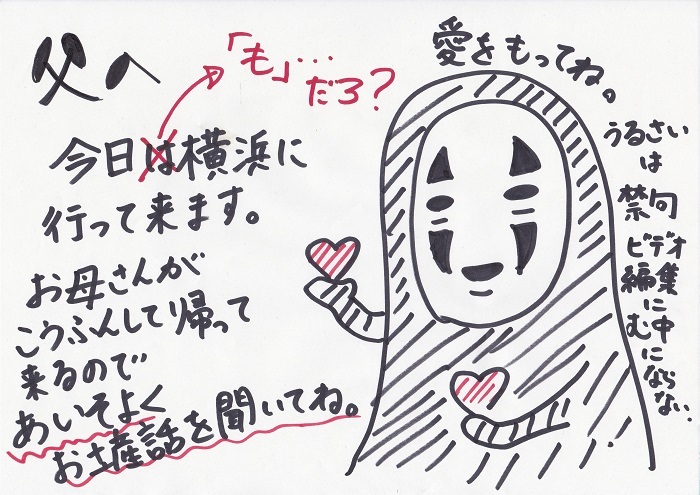 父へ
「も」…
だろ?
今日は横浜に
行って来ます。
お母さんが
こうふんして帰って
来るので
あいそよく
お土産話を聞いてね。
愛をもってね。
うるさい
は
禁句
ビデオ
編集に
む中
にならない.